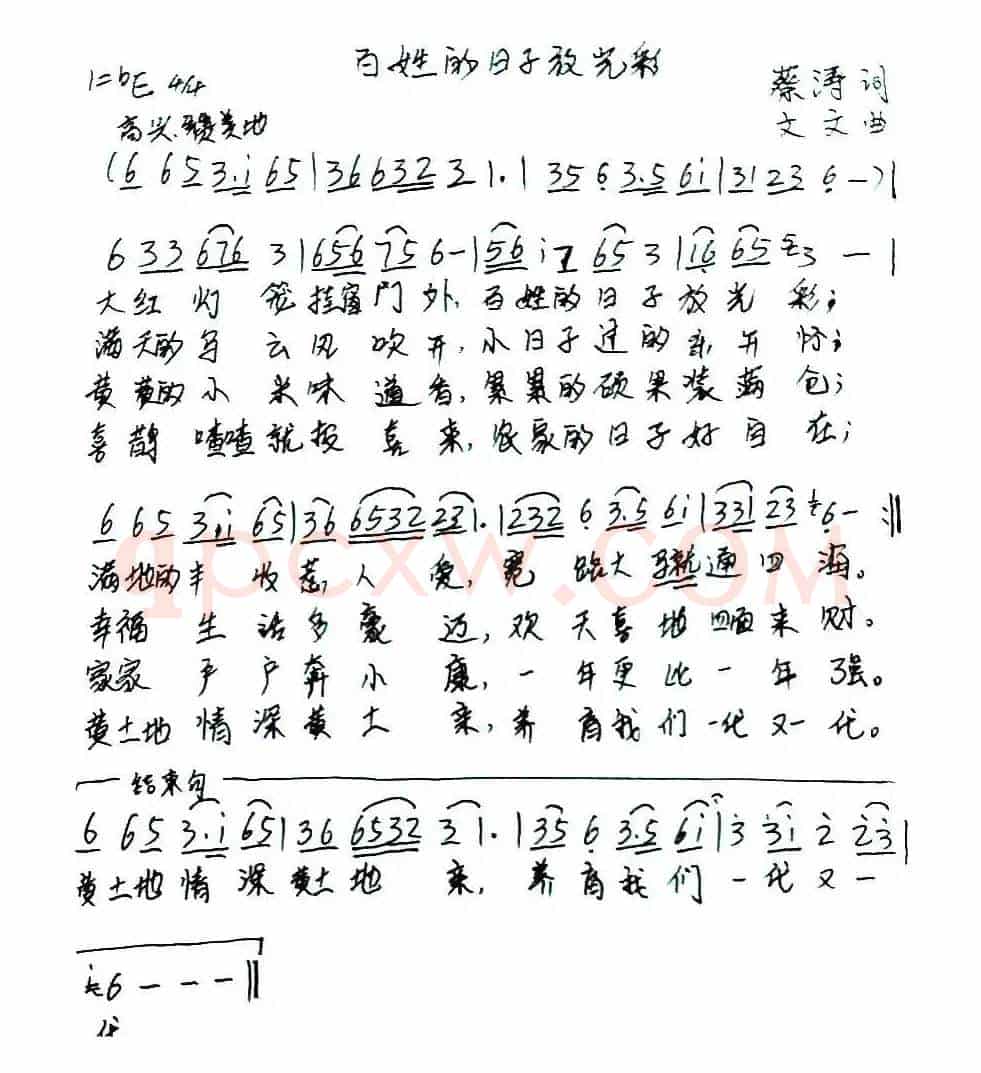 百姓的日子放光彩
1=bE 4/4
蔡涛词
高兴.赞美地
文文曲
(6 65 3.i 65|36 632 2 1.|35 6 3.5 6i|31 23 6 -)|
6 33 676 3|656 75 6-|56 i7 65 3|16 65 3 -|
大红灯笼挂窗门外,百姓的日子放光彩;
满天的乌云风吹开,小日子过的乐开怀;
黄黄的小米味道香,累累的硕果装满仓;
喜鹊喳喳就报喜来,农家的日子好自在;
6 65 3.i 65|36 6532 231.|232 6 3.5 6i|331 23 6- :‖
满地的丰收惹人爱,宽路大就通四海。
幸福生活多豪迈,欢天喜地四面来财。
家家户户奔小康,一年更比一年强。
黄土地情深黄土亲,养育我们一代又一代。
结束句
6 65 3.i 65|36 6532 2 1.|35 6 3.5 6i|3 3i 2 23|
黄土地情深黄土地亲,养育我们一代又一
6 - - -‖
代
qpcxw.COM